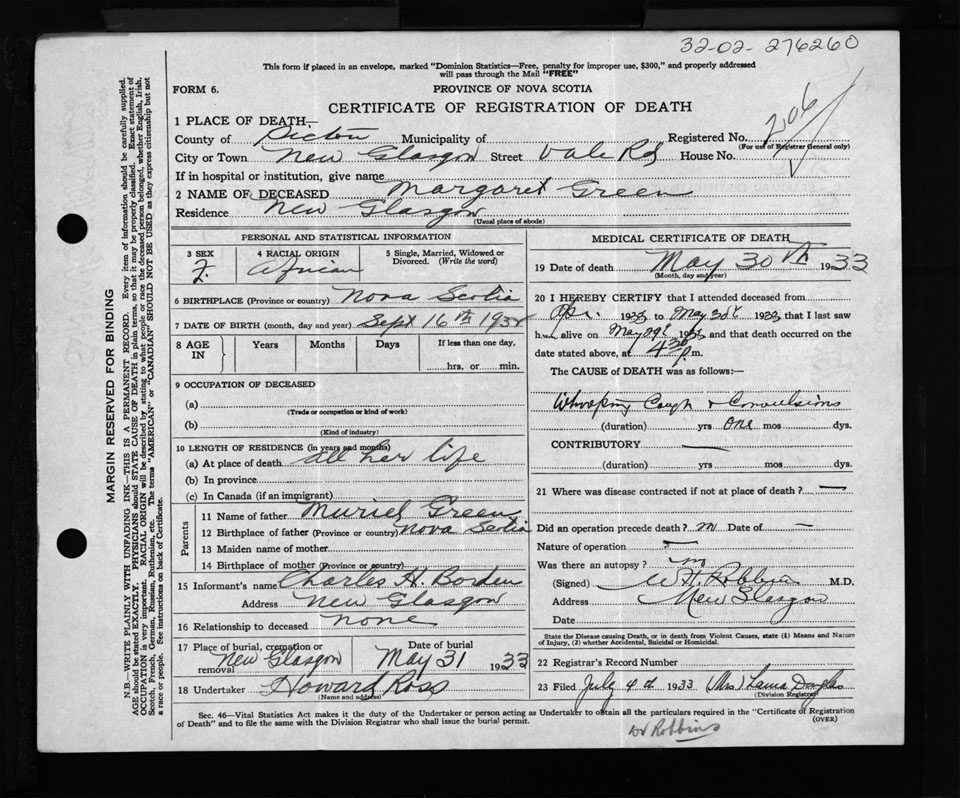 32-02-276260
This form if placed in an envelope, marked "Dominion Statistics—Free, penalty for improper use, $300," and properly addressed
will pass through the Mail "FREE"
FORM 6.
PROVINCE OF NOVA SCOTIA
CERTIFICATE OF REGISTRATION OF DEATH
1 PLACE OF DEATH—
County of Pictou Municipality of Registered No. 206
(For use of Registrar General only)
City or Town New Glasgow Street Vale Rd House No.
If in hospital or institution, give name
2 NAME OF DECEASED Margaret Green
Residence New Glasgow
(Usual place of abode)
PERSONAL AND STATISTICAL INFORMATION
3 SEX F.
4 RACIAL ORIGIN African
5 Single, Married, Widowed or Divorced. (Write the word)
6 BIRTHPLACE (Province or country) Nova Scotia
7 DATE OF BIRTH (month, day and year) Sept 16th 1932
8 AGE IN Years Months Days If less than one day, hrs. or min.
9 OCCUPATION OF DECEASED
(a)
(Trade or occupation or kind of work)
(b)
(Kind of industry)
10 LENGTH OF RESIDENCE (in years and months)
(a) At place of death all her life
(b) In province
(c) In Canada (if an immigrant)
Parents
11 Name of father Muriel Green
12 Birthplace of father (Province or country) Nova Scotia
13 Maiden name of mother
14 Birthplace of mother (Province or country)
15 Informant's name Charles H. Borden
Address New Glasgow
16 Relationship to deceased none
17 Place of burial, cremation or removal New Glasgow
Date of burial May 31 1933
18 Undertaker Howard Ross
(Name and address)
MEDICAL CERTIFICATE OF DEATH
19 Date of death May 30th 1933
(Month, day and year)
20 I HEREBY CERTIFY that I attended deceased from
Apr. 1933 to May 30th 1933 that I last saw
h alive on May 29th 1933 and that death occurred on
date stated above, at 4.30 p.m.
The CAUSE of DEATH was as follows:—
Whooping Cough & Convulsions
(duration) yrs one mos dys.
CONTRIBUTORY —
(duration) yrs mos. dys.
21 Where was disease contracted if not at place of death? —
Did an operation precede death? no Date of —
Nature of operation —
Was there an autopsy? no
(Signed) W H Robbins M.D.
Address New Glasgow
Date
State the Disease causing Death, or in death from Violent Causes, state (1) Means and Nature
of Injury, (2) whether Accidental, Suicidal or Homicidal.
22 Registrar's Record Number
23 Filed July 4th 1933 (Mrs) Lama Douglas
(Division Registrar)
Sec. 46—Vital Statistics Act makes it the duty of the Undertaker or person acting as Undertaker to obtain all the particulars required in the "Certificate of Registration
of Death" and to file the same with the Division Registrar who shall issue the burial permit.
(OVER)
Dr Robbins
MARGIN RESERVED FOR BINDING
N.B.—WRITE PLAINLY WITH UNFADING INK—THIS IS A PERMANENT RECORD. Every item of information should be carefully supplied.
AGE should be stated EXACTLY. PHYSICIANS should STATE CAUSE OF DEATH in plain terms, so that it may be properly classified. Exact statement of
OCCUPATION is very important. RACIAL ORIGIN will be described by stating to what people or race the deceased person belonged, whether English, Irish,
Scotch, French, German, Russian, Ruthenian, etc. The terms "AMERICAN" or "CANADIAN" SHOULD NOT BE USED as they express citizenship but not
a race or people. See instructions on back of Certificate.